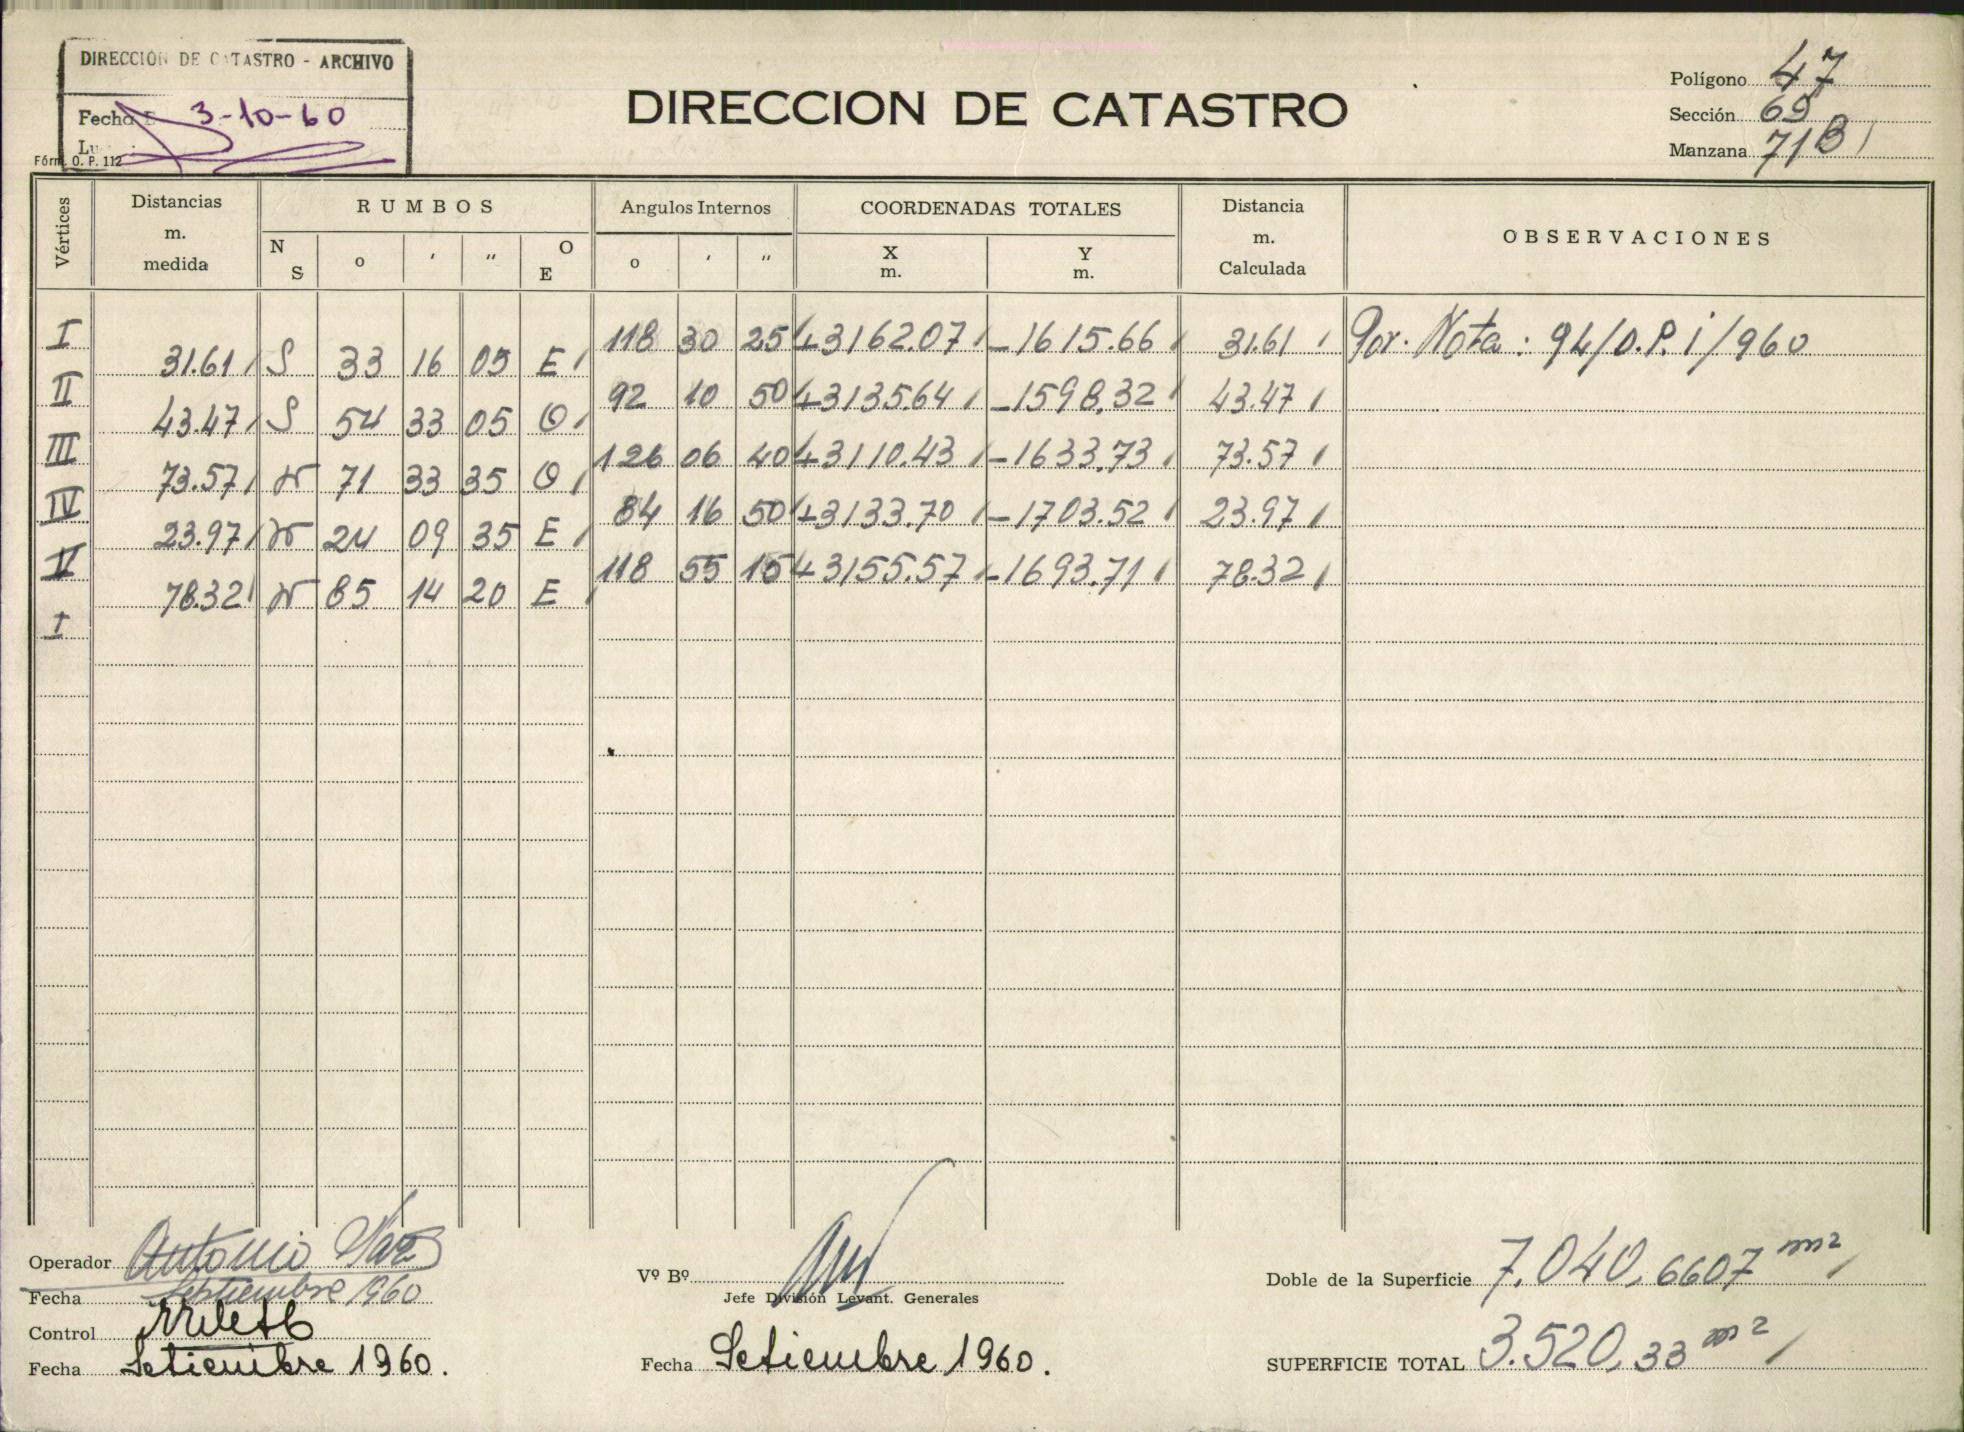 DIRECCION DE CATASTRO - ARCHIVO
Fecha 3-10-60
Fórm. O. P. 112
DIRECCION DE CATASTRO
Polígono 47
Sección 69
Manzana 71B
Vértices
Distancias m. medida
RUMBOS
N S o ' " O E
Angulos Internos
o ' "
COORDENADAS TOTALES
X m. Y m.
Distancia m. Calculada
OBSERVACIONES
I 118 30 25 +3162.07 -1615.66 31.61 Por. Nota: 94/O.P. i/960
31.61 S 33 16 05 E
II 92 10 50 +3135.64 -1598.32 43.47
43.47 S 54 33 05 O
III 126 06 40 +3110.43 -1633.73 73.57
73.57 N 71 33 35 O
IV 84 16 50 +3133.70 -1703.52 23.97
23.97 N 24 09 35 E
V 118 55 15 +3155.57 -1693.71 78.32
78.32 N 85 14 20 E
I
Operador Antonio
Fecha Septiembre 1960
Control
Fecha Setiembre 1960.
Vº Bº
Jefe División Levant. Generales
Fecha Setiembre 1960.
Doble de la Superficie 7.040,6607 m2
SUPERFICIE TOTAL 3.520,33 m2